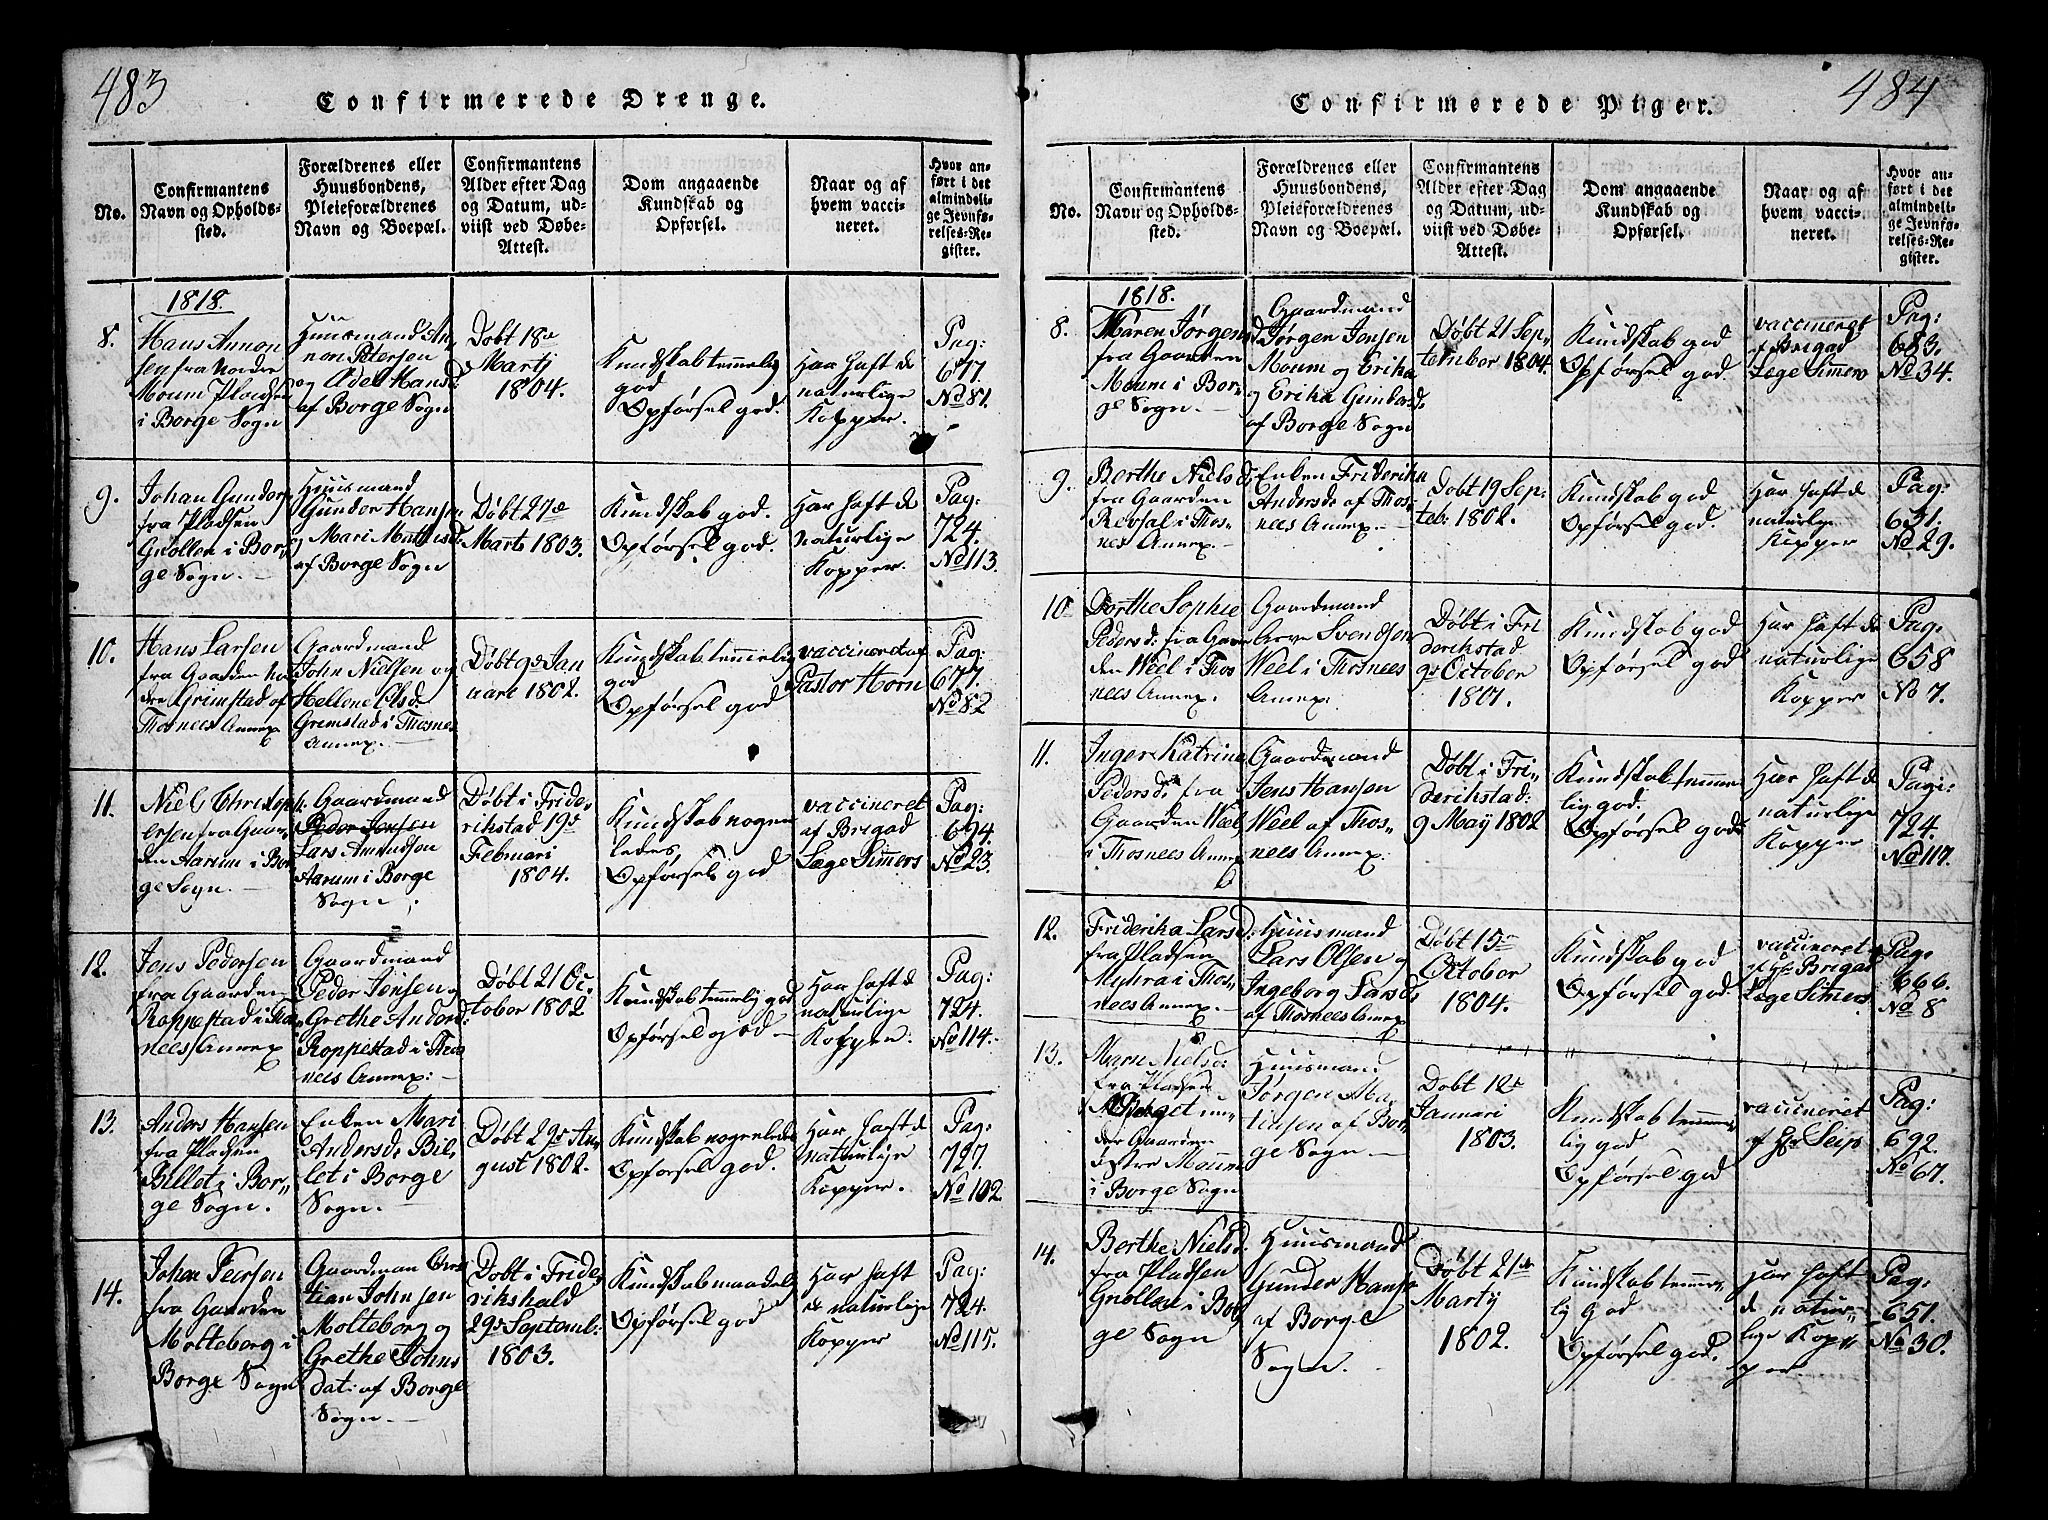 483
Confirmerede Drenge.
No.
Confirmantens
Navn og Opholds-
sted.
Forældrenes eller
Huusbondens,
Pleieforældrenes
Navn og Boepæl.
Confirmantens
Alder efter Dag
og Datum, ud-
viist ved Døbe-
Attest.
Dom angaaende
Kundskab og
Opførsel.
Naar og af
hvem vacci-
neret.
Hvor an-
ført i det
almindeli-
ge Jevnfø-
relses-Re-
gister.
1818.
8.
Hans Annon
sen fra Nordre
Moum Pladsen
i Borge Sogn
Huusmand An-
non Petersen
og Adel Hansd:
af Borge Sogn
Døbt 18de
Martj
1804.
Kundskab temmelig
god
Opførsel god.
Har haft de
naturlige
Kopper.
Pag:
677
No 81.
9.
Johan Gunders
fra Pladsen
Gnollen i Bor-
ge Sogn.
Huusmand
Gunder Hansen
og Mari Mathisd
af Borge Sogn
Døbt 27de
Marts 1803.
Kundskab god.
Opførsel god.
Har haft de
naturlige
Kopper.
Pag:
724.
No 113.
10.
Hans Larsen
fra Gaarden no
dre Grimstad af
Thosnees Annex
Gaardmand
John Nielsen og
Hellene Elsd:
Gremstad i Thosnes
Annex.
Døbt 9de Jan
uari 1802.
Kundskab temmelig
god
Opførsel god
vaccineret af
Pastor Horn
Pag:
677.
No 82
11.
Niels Christoph
ersen fra Gaar-
den Aarum i Bor
ge Sogn.
Gaardmand
Peder Jensen
Lars Amundsen
Aarum i Borge
Sogn.
Døbt i Fride-
rikstad 19de
Februari
1804.
Kundskab nogen
ledes
Opførsel god
vaccineret
af Brigad
Læge Simers
Pag:
694.
No 23.
12.
Jens Pedersen
fra Gaarden
Roppestad i Tho
nees Annex
Gaardmand
Peder Jensen og
Grethe Anders
Roppestad i Thos
nees Annex:
Døbt 21 Oc
tober 1802
Kundskab temmelig god
Opførsel god
Har haft de
naturlige
Kopper:
Pag:
724.
No 114.
13.
Anders Hansen
fra Pladsen
Billet i Bor-
ge Sogn.
Enken Mari
Andersd: Bil-
let i Borge
Sogn.
Døbt 29de Au
gust 1802.
Kundskab nogenlede
Opførsel god.
Har haft de
naturlige
Kopper.
Pag:
727.
No 102
14.
Johan Peersen
fra Gaarden
Molteborg i
Borge Sogn
Gaardman Chri
stian Johnsen
Molteborg og
Grethe Johns
dat: af Borge
Sogn
Døbt i Fride
rikshald
29de Septemb:
1803.
Kundskab maadelig
Opførsel god
Har haft
de naturlige
Kopper
Pag:
724.
No 115.
484
Confirmerede Piger.
No.
Confirmantens
Navn og Opholds-
sted.
Forældrenes eller
Huusbondens,
Pleieforældrenes
Navn og Boepæl.
Confirmantens
Alder efter Dag
og Datum, ud-
viist ved Døbe-
Attest.
Dom angaaende
Kundskab og
Opførsel.
Naar og af
hvem vacci-
neret.
Hvor an-
ført i det
almindeli-
ge Jevnfø-
relses-Re-
gister.
1818.
8.
Maren Jørgens
fra Gaarden
Moum i Bor-
ge Sogn.
Gaardmand
Jørgen Jonsen
Moum og Erika
og Erika Gundersd:
af Borge Sogn
Døbt 21 Sep
tember 1804.
Kundskab god
Opførsel god.
vaccineret
af Brigad
Læge Simers
Pag:
683.
No 34.
9.
Berthe Nielsd:
fra Gaarden
Revsal i Thos-
nes Annex.
Enken Friderika
Andersd: af Thos-
nees Annex.
Døbt 19 Sep-
teb: 1802.
Kundskab god
Opførsel god.
Har haft de
naturlige
Kopper
Pag:
631.
No 29.
10
Dorthe Sophie
Pedersd: fra Gaar
den Weel i Thos
nees Annex.
Gaardmand
Arve Svendsen
Weel i Thosnees
Annex:
Døbt i Fri
derikstad
9de October
1801.
Kundskab god
Opførsel god
Har haft de
naturlige
Kopper
Pag:
658
No 7.
11.
Inger Katrina
Pedersd: fra
Gaarden Weel
i Thosnees Annex
Gaardmand
Jens Hansen
Weel af Thos-
nees Annex:
Døbt i Fri-
derikstad:
9 Maij 1802
Kundskab temme
lig god.
Opførsel god
Har haft de
naturlige
Kopper
Pag:
724.
No 117.
12.
Friderika Larsd:
fra Pladsen
Myhra i Thos-
nees Annex.
Huusmand
Lars Olsen og
Ingeborg Larsd:
af Thosnees Annex
Døbt 15de
October
1804.
Kundskab god
Opførsel god
vaccineret
af Hr Brigad
Læge Simers
Pag:
666.
No 8
13.
Maren Nielsd:
fra Pladsen
un-
der Gaarden
østre Moum
i Borge Sogn
Huusmand
Jørgen Ma-
tisen af Bor-
ge Sogn.
Døbt 12te
Januari
1803.
Kundskab temme-
lig god
Opførsel god
vaccineret
af Hr Seip
Pag:
692.
No 67.
14.
Berthe Nielsd.
fra Pladsen
Gnollen i Bor
ge Sogn
Huusmand
Gunder Hans
af Borge
Sogn.
Døbt 21de
Martij
1802.
Kundskab temme-
lig god
Opførsel god.
Har haft
de natur-
lige Kop-
per.
Pag:
651.
No 30.